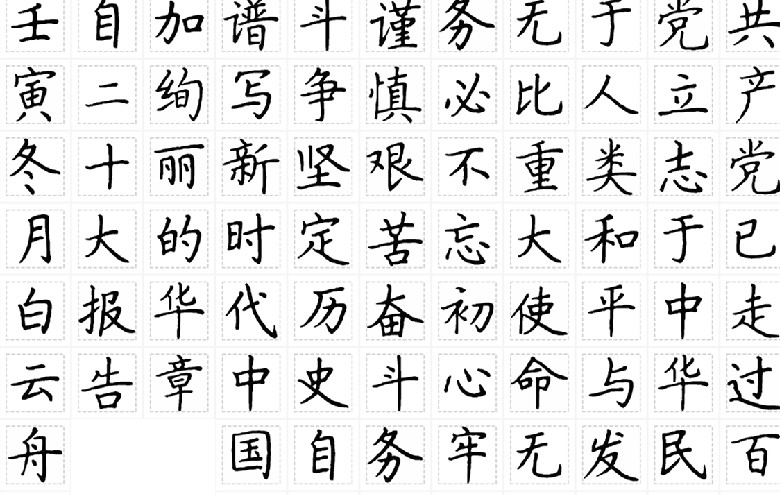 共产党已走过百
党立志于中华民
于人类和平与发
无比重大使命无
务必不忘初心牢
谨慎艰苦奋斗务
斗争坚定历史自
谱写新时代中国
加绚丽的华章
自二十大报告
壬寅冬月白云舟